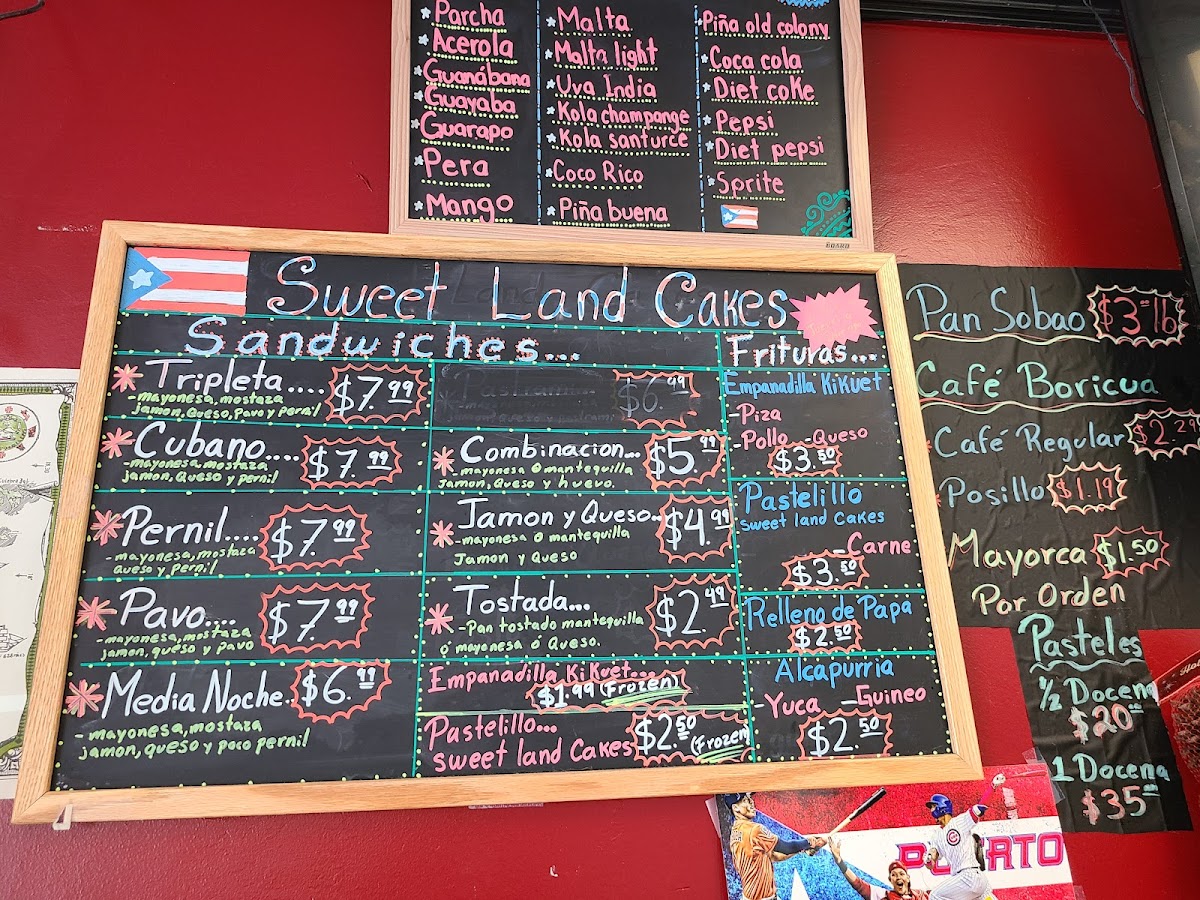 Parcha
Acerola
Guanábana
Guayaba
Guarapo
Pera
Mango
Malta
Malta light
Uva India
Kola champange
Kola santurce
Coco Rico
Piña buena
Piña old colony
Coca cola
Diet coke
Pepsi
Diet pepsi
Sprite
Sweet Land Cakes
Sandwiches...
Tripleta.... $7.99
-mayonesa, mostaza
jamon, Queso, Pavo y pernil
Cubano.... $7.99
-mayonesa, mostaza
jamon, Queso y pernil
Pernil.... $7.99
-mayonesa, mostaza
queso y pernil
Pavo.... $7.99
-mayonesa, mostaza
jamon, queso y pavo
Media Noche. $6.99
-mayonesa, mostaza
jamon, queso y poco pernil
$6.49
Combinacion... $5.99
-mayonesa o mantequilla
Jamon, Queso y huevo.
Jamon y Queso.. $4.99
-mayonesa o mantequilla
Jamon y Queso
Tostada... $2.49
-Pan tostado mantequilla
ó mayonesa ó Queso.
Empanadilla KiKuet...
$1.99 (Frozen)
Pastelillo... $2.50 (Frozen)
sweet land Cakes
Frituras...
Empanadilla KiKuet
-Piza
-Pollo -Queso
$3.50
Pastelillo
sweet land Cakes
-Carne
$3.50
Relleno de Papa
$2.50
Alcapurria
-Yuca -Guineo
$2.50
Pan Sobao $3.00 lb
Café Boricua
Café Regular $2.29
Posillo $1.19
Mayorca $1.50
Por Orden
Pasteles
½ Docena
$20.00
1 Docena
$35.00